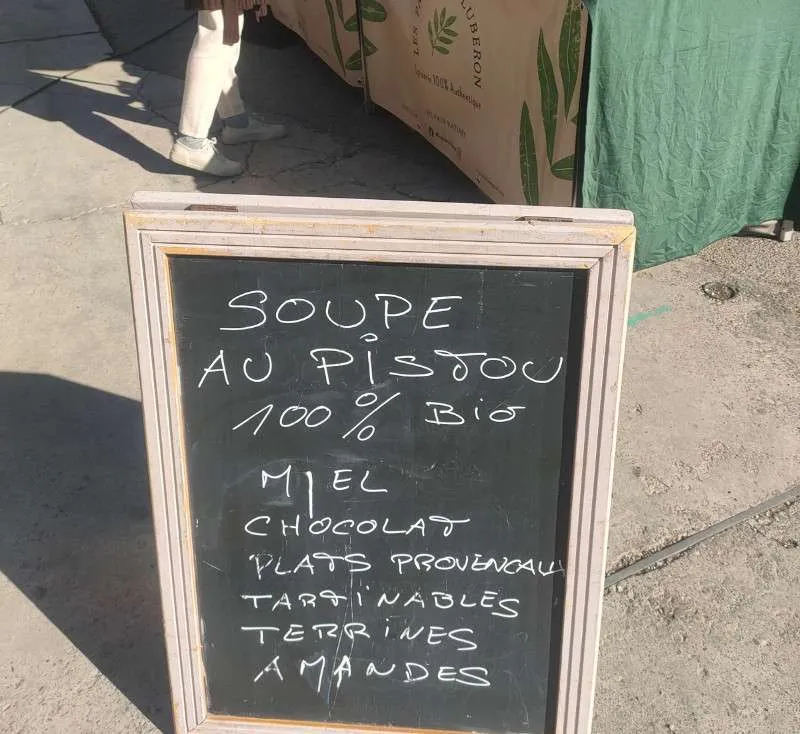 LUBERON
100% Authentique
SOUPE
AU PISTOU
100% BIO
MIEL
CHOCOLAT
PLATS PROVENCAUX
TARTINABLES
TERRINES
AMANDES